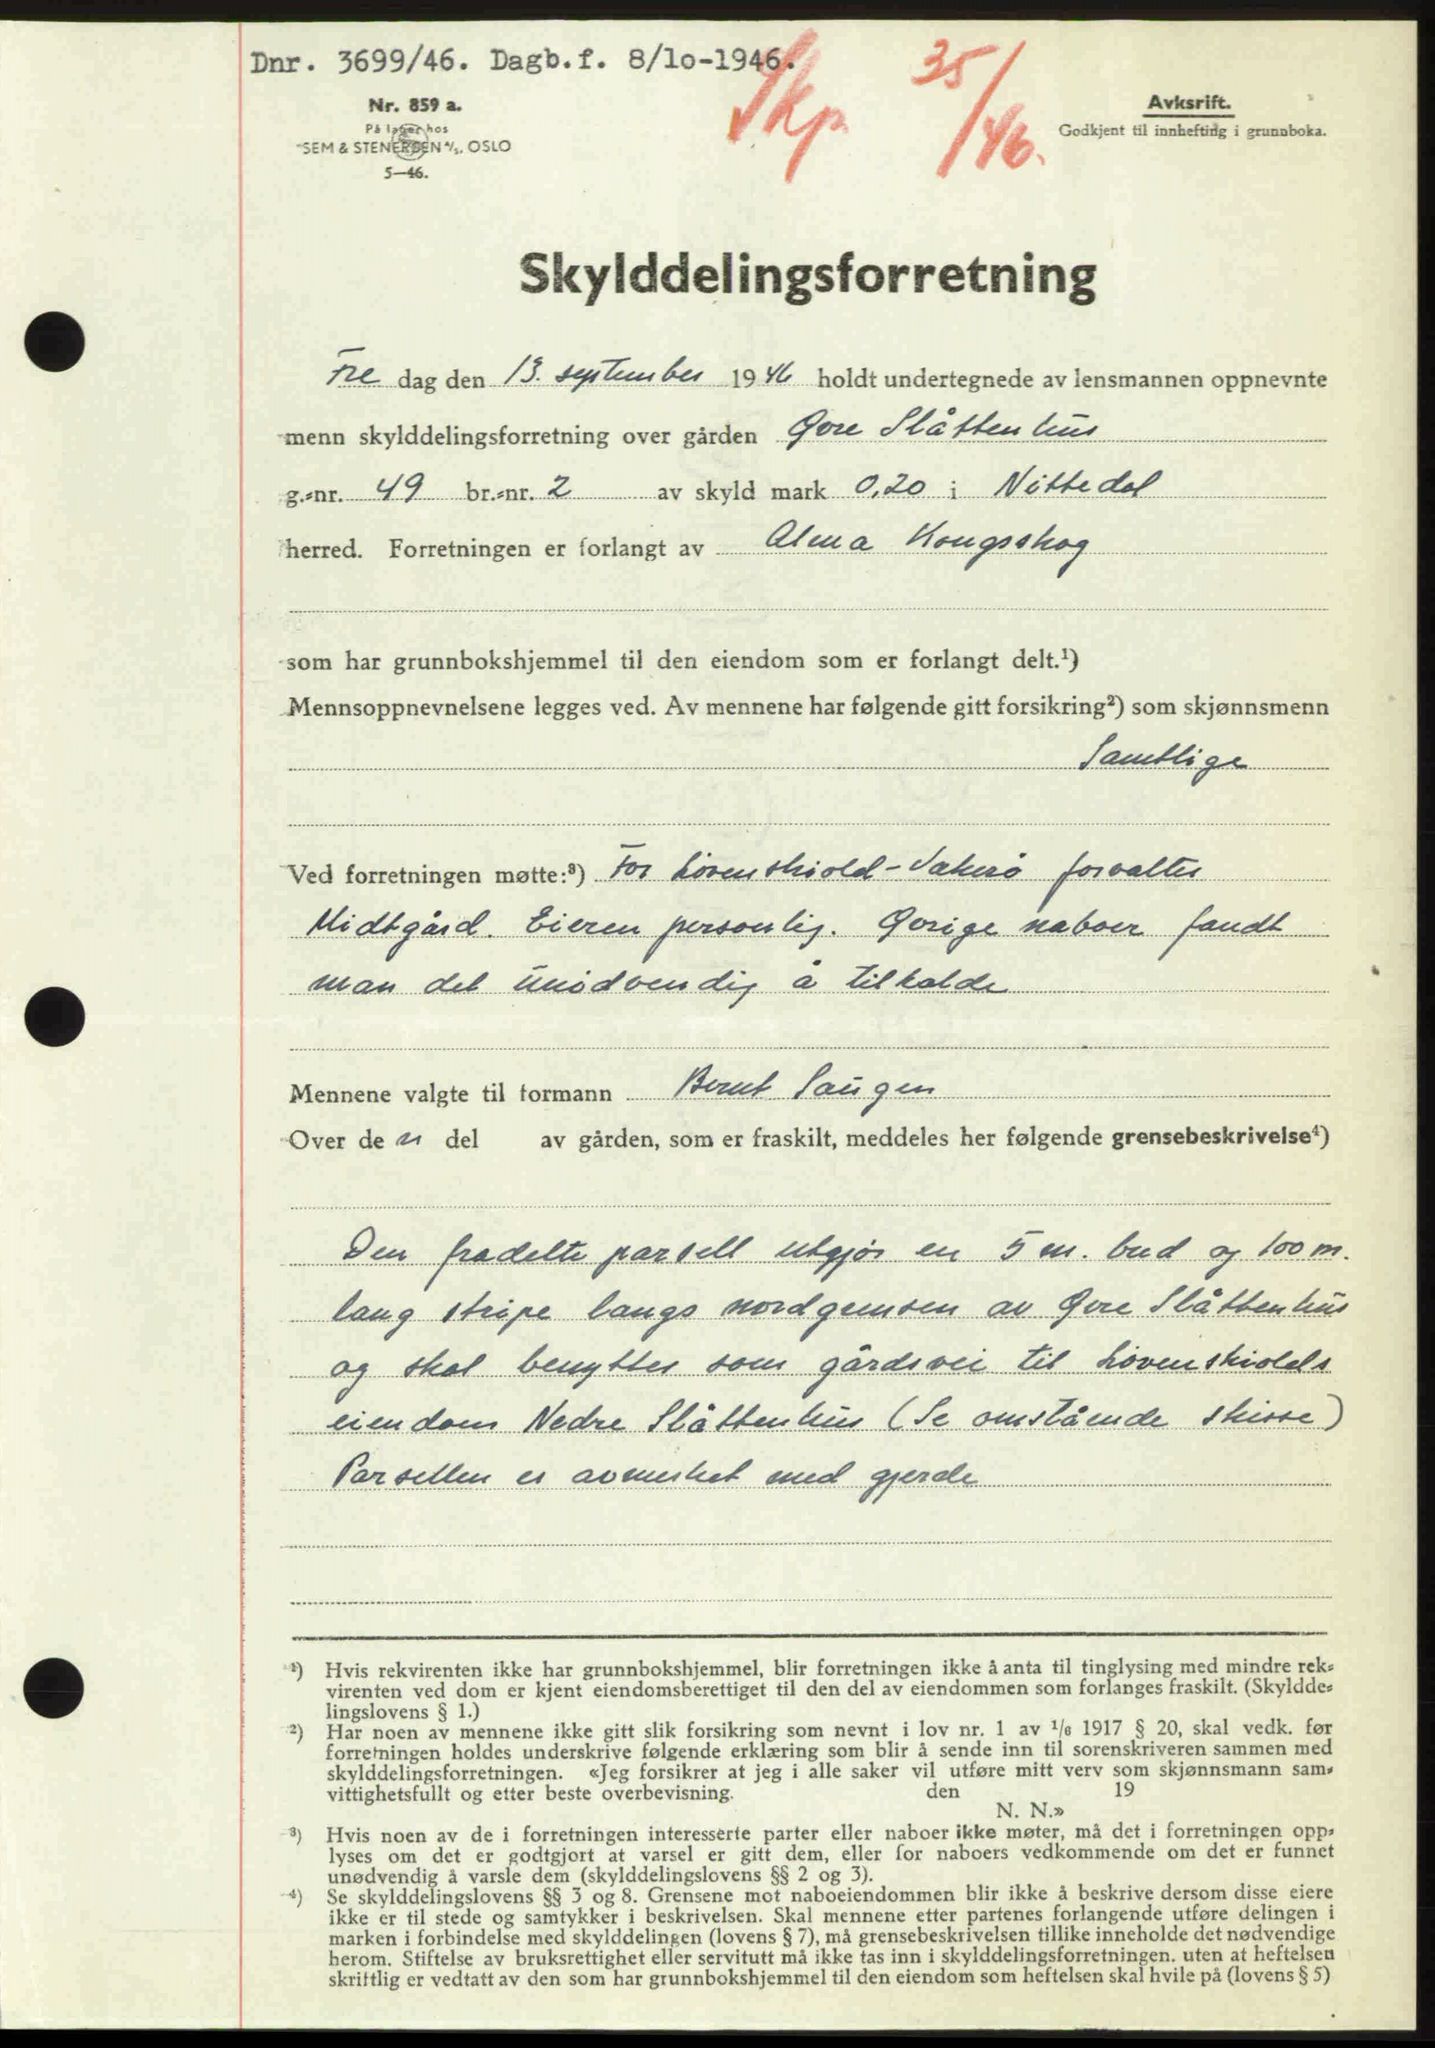 Dnr. 3699/46. Dagb.f. 8/10-1946.
Skp. 35/46.
Nr. 859 a.
På lager hos
SEM & STENERSEN A/S, OSLO
5—46.
Avksrift.
Godkjent til innhefting i grunnboka.
Skylddelingsforretning
Fre dag den 13. september 1946 holdt undertegnede av lensmannen oppnevnte
menn skylddelingsforretning over gården Øvre Slåttenhus
g.-nr. 49 br.-nr. 2 av skyld mark 0,20 i Nittedal
herred. Forretningen er forlangt av Alma Kongsskog
som har grunnbokshjemmel til den eiendom som er forlangt delt.¹)
Mennsoppnevnelsene legges ved. Av mennene har følgende gitt forsikring²) som skjønnsmenn
Samtlige
Ved forretningen møtte:³) For Løvenskiold-Vækerø forvalter
Midtgård. Eieren personlig. Øvrige naboer fandt
man det unødvendig å tilkalde
Mennene valgte til formann Bernt Haugen
Over de n del av gården, som er fraskilt, meddeles her følgende grensebeskrivelse⁴)
Den fradelte parsell utgjør en 5 m. bred og 100 m.
lang stripe langs nordgrensen av Øvre Slåttenhus
og skal benyttes som gårdsvei til Løvenskiolds
eiendom Nedre Slåttenhus (Se omstående skisse)
Parsellen er avmerket med gjerde
¹) Hvis rekvirenten ikke har grunnbokshjemmel, blir forretningen ikke å anta til tinglysing med mindre rek-
virenten ved dom er kjent eiendomsberettiget til den del av eiendommen som forlanges fraskilt. (Skyldde-
lingslovens § 1.)
²) Har noen av mennene ikke gitt slik forsikring som nevnt i lov nr. 1 av 1/6 1917 § 20, skal vedk. før
forretningen holdes underskrive følgende erklæring som blir å sende inn til sorenskriveren sammen med
skylddelingsforretningen. «Jeg forsikrer at jeg i alle saker vil utføre mitt verv som skjønnsmann sam-
vittighetsfullt og etter beste overbevisning. den 19
N. N.»
³) Hvis noen av de i forretningen interesserte parter eller naboer ikke møter, må det i forretningen opp-
lyses om det er godtgjort at varsel er gitt dem, eller for naboers vedkommende om det er funnet
unødvendig å varsle dem (skylddelingslovens §§ 2 og 3).
⁴) Se skylddelingslovens §§ 3 og 8. Grensene mot naboeiendommen blir ikke å beskrive dersom disse eiere
ikke er til stede og samtykker i beskrivelsen. Skal mennene etter partenes forlangende utføre delingen i
marken i forbindelse med skylddelingen (lovens § 7), må grensebeskrivelsen tillike inneholde det nødvendige
herom. Stiftelse av bruksrettighet eller servitutt må ikke tas inn i skylddelingsforretningen. uten at heftelsen
skriftlig er vedtatt av den som har grunnbokshjemmel til den eiendom som heftelsen skal hvile på (lovens § 5)